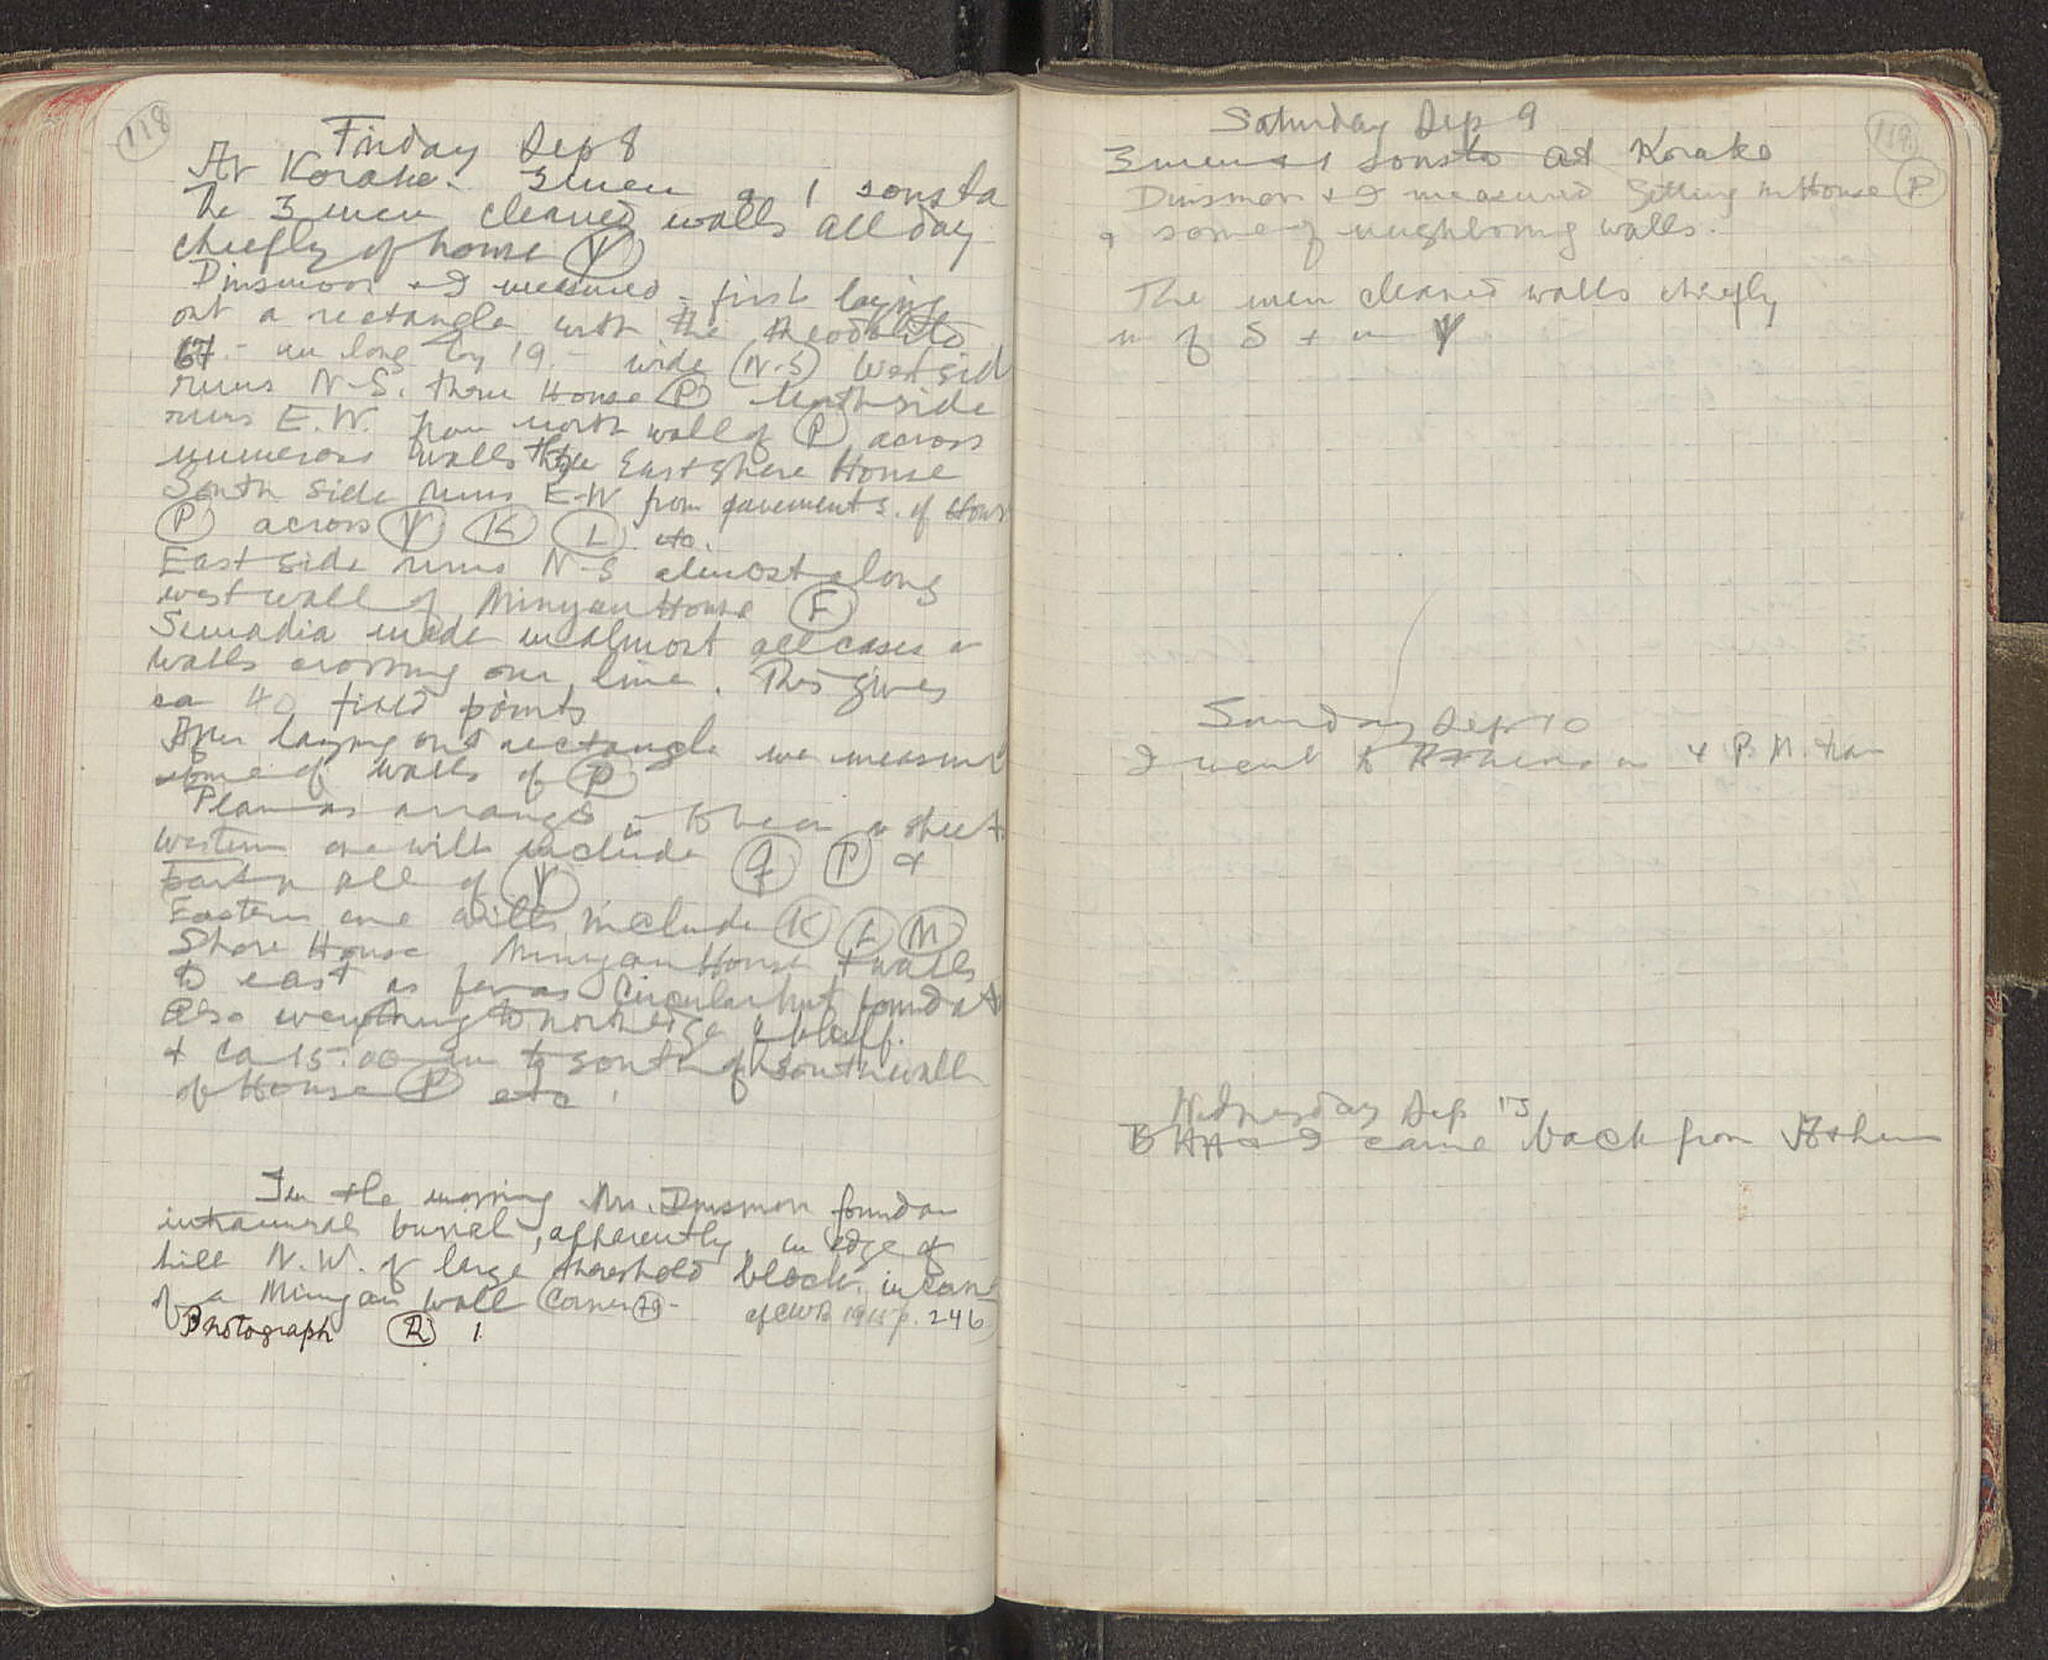 118
Friday Sep 8
At Korako. 3 men & 1 sousta
The 3 men cleaned walls all day
chiefly of house Y
Dinsmoor & I measured - first laying
out a rectangle with the theodolite
67.- m long by 19.- wide (N-S) West side
runs N-S. thru House P North side
runs E.W. from north wall of P across
numerous walls thru East Shore House
South side runs E-W from pavement S. of House
P across Y K L etc.
East side runs N-S almost along
west wall of Minyan House F
Simadia made in almost all cases on
walls crossing our line. This gives
ca 40 fixed points
After laying out rectangle we measured
some of walls of P
Plan as arranged, to be on 2 sheets
Western one will include P &
part or all of Y
Eastern one will include K L M
Shore House Minyan House & walls
to east as far as Circular hut foundat
Also everything to north edge of bluff.
& ca 15.00 m to south of south wall
of House P etc.
In the morning Mrs. Dinsmoor found an
intramural burial, apparently, in edge of
hill N.W. of large threshold block. in corner
of a Minyan wall (Corner 79- cf CWB 1915 p. 246)
Photograph R 1
119.
Saturday Sep 9
3 men & 1 sousta at Korako
Dinsmoor & I measured Setting in House P
& some of neighboring walls.
The men cleaned walls chiefly
n of S & in Y
Sunday Sep 10
I went to Athens on 4 P.M. train
Wednesday Sep 13
BHH & I came back from Athens